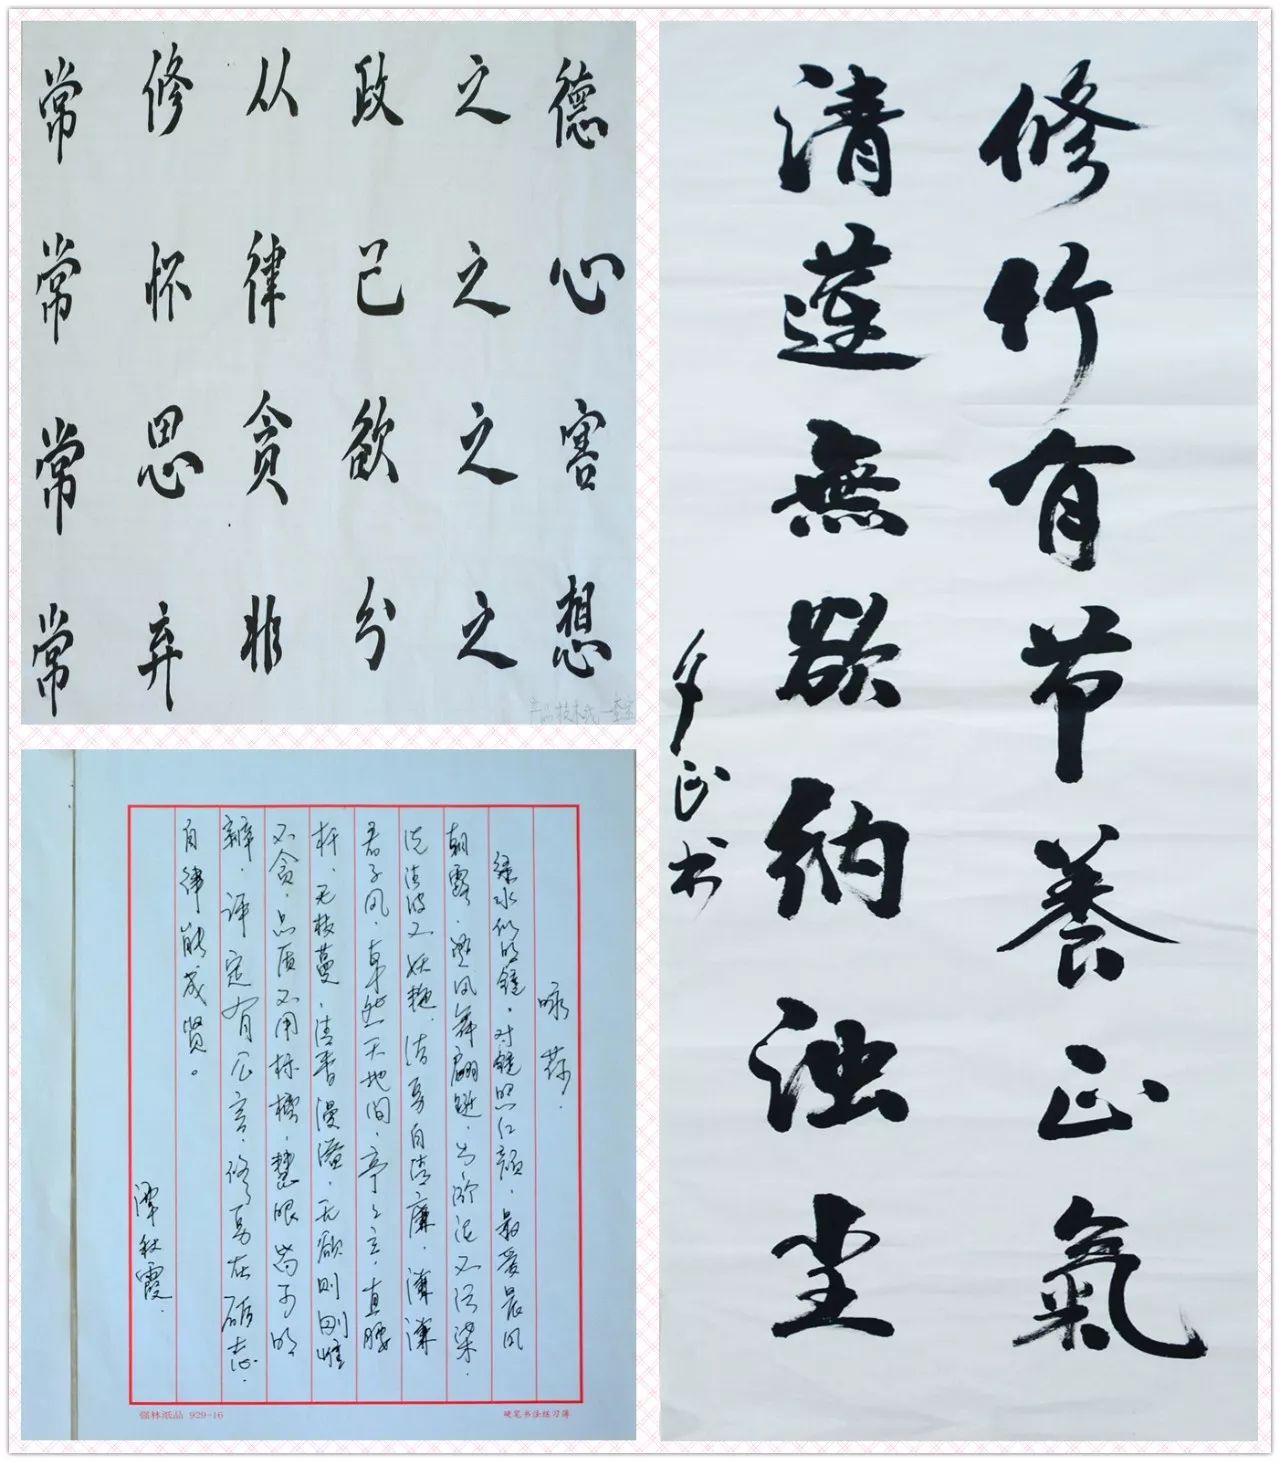 常修从政之德
常怀律己之心
常思贪欲之害
常弃非分之想
修竹有节养正氣
清莲無欲纳浊尘
咏荷.
绿水似明镜,对镜照仁颜,最爱晨风
朝露,迎风舞翩跹,出淤泥不污染.
洗清波不妖艳,洁身自清廉,溝溝
君子风,卓然天地间,亭亭立,直腰
杆,无枝蔓,清香漫溢,无欲则刚惟
不贪,品质不用标榜,慧眼学子明
辨,评定有公言,修身在砺志.
自律能成贤。
谭秋霞.
强林纸品 929-16
硬笔书法练习簿